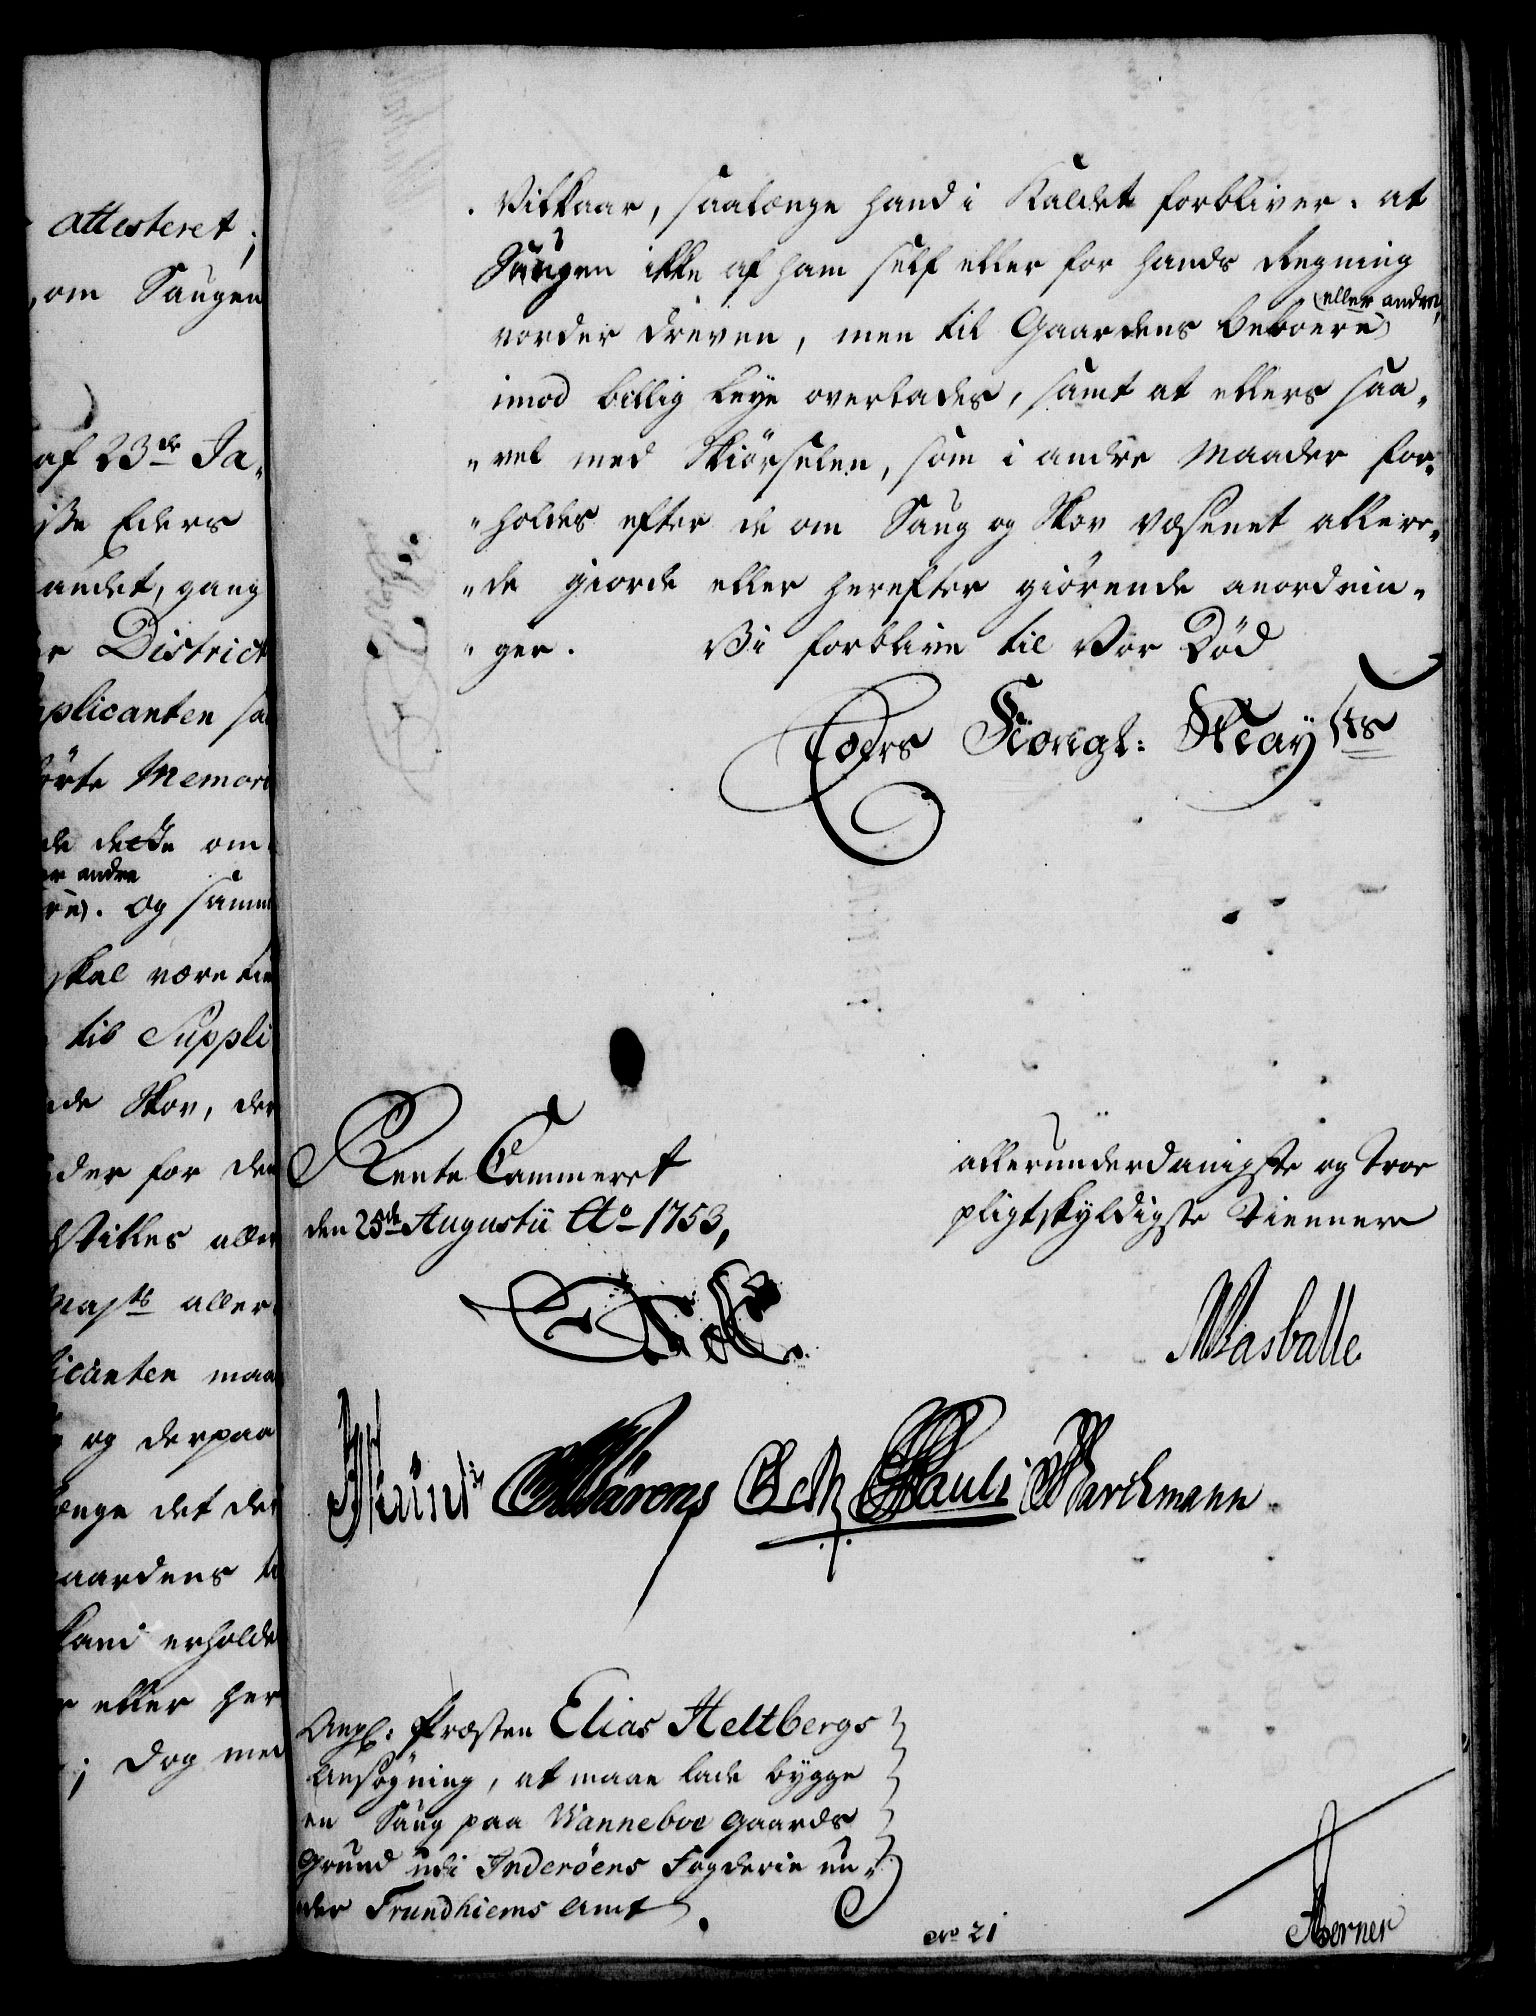 attesteret;
om Saugen
af 23de Ja-
Eders
andet, gang
District
plicanten saa
Memori
dette om-
andre
Og samme
skal være
til Suppli
Skov, der
der for den
aller
Mayts aller-
licanten maa
og derpaa
længe det der
Gaardens
erholde
eller her
; dog med
Vilkaar, saalænge hand i Kaldet forbliver. at
Saugen ikke af ham self eller for hands Regning
vorder dreven, men til Gaardens beboere (eller andre,)
imod billig Leye overlades, samt at ellers saa-
vel med Skiørselen, som i andre Maader for-
holdes efter de om Saug og Skov væsenet allere-
de giorde eller herefter giørende anordnin-
ger. Vi forblive til Vor Død
Eders Kongl: Mayts
Rente Cammeret
den 25de Augustii Ao 1753,
allerunderdanigste og troe
pligtskyldigste Tiennere
Masballe
Pauli Barchmann
Angl: Præsten Elias Heltbergs
Ansøgning, at maae lade bygge
en Saug paa Wanneboe Gaards
Grund udi Inderøens Fogderie un-
der Trundhiems Amt.
No 21
Berner